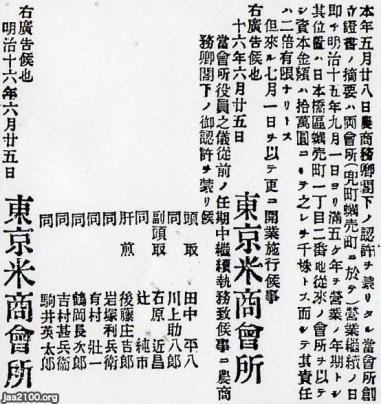 本年五月廿八日農商務卿閣下ノ認許ヲ蒙リタル當會所創
立證書ノ摘要ハ兩會所(兜町蠣売町ニ於テ)營業繼續ノ日
即チ明治十五年九月一日ヨリ滿五ケ年ヲ營業ノ年期トシ
其位置ハ日本橋區蠣売町一丁目二番地從來ノ會所ヲ以テ
シ資本金額ハ拾萬圓ニシテ之レヲ千株トス而シテ其責任
ハ二倍有限ナリトス
但來ル七月一日ヲ以テ更ニ開業施行候事
十六年六月廿五日 東京米商會所
當會所役員之儀從前ノ任期中繼續執務致候事ニ農商
務卿閣下ノ御認許ヲ蒙リ候
頭取 田中平八
同 川上助八郎
副頭取 石原近昌
同 辻純市
肝煎 後藤庄吉郎
同 岩塚利兵衛
同 有村壯一
同 鶴岡長次郎
同 吉村甚兵衛
同 駒井英太郎
右廣告候也
明治十六年六月廿五日 東京米商會所
jaa2100.org